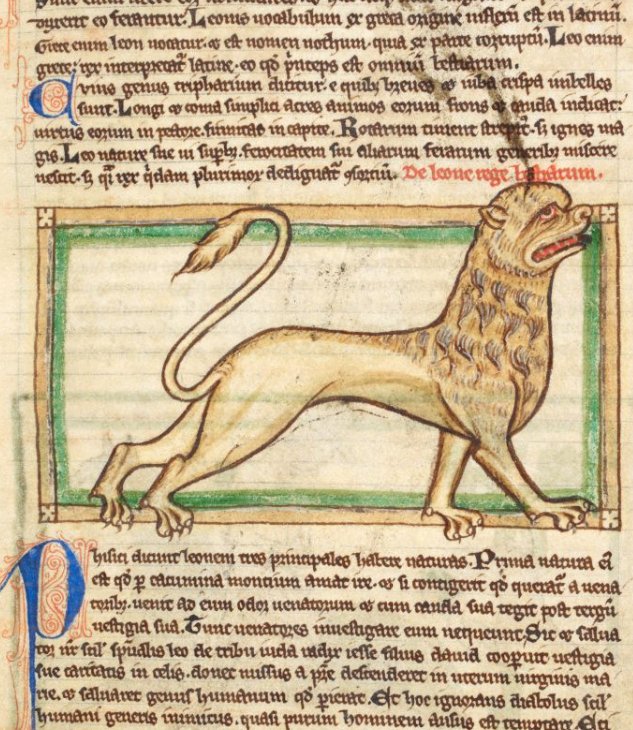 dicerit eo ferantur. Leonis vocabulum ex greca origine inflexū est in latinū.
Grece enim leon vocatur. ⁊ est nomen nothum. quia ex parte corruptū. Leo enim
grece. rex interpretat̄ latine. eo qd̄ p̄nceps est omniū bestiarum.
Cuius genus tripharium dicitur. e quib; breues ⁊ iuba crispa inbelles
sunt. Longi ⁊ coma simplici acres animos eorum frons ⁊ cauda indicat.
uirtus eorum in pectore. firmitas in capite. Rotarum timent strepit᷒. s; ignes ma
gis. Leo nature sue ui supb᷒. ferocitatem sui aliarum ferarum generib; miscere
nescit. s; q̇ rex q̇dam plurimor᷒ dedignat̄ ꝯsortiū. De leone rege bestiarum.
Phisici dicunt leonem tres principales habere naturas. Prima natura eī
est qd̄ ꝑ cacumina montium amat ire. ⁊ si contigerit qd̄ querat̄ a uena
torib;. uenit ad eum odor uenatorum ⁊ cum cauda sua tegit post tergū
uestigia sua. Tunc uenatores inuestigare eum nequeunt. Sic ⁊ salua
tor nr̄ scil᷒ spūalis leo de tribu iuda radix iesse filius dauid cooꝑuit uestigia
sue caritatis in celis. donec missus a pr̄e descenderet in uterum uirginis ma
rie. ⁊ saluaret genus humanum qd̄ pierat. Et hoc ignorans diabolus scil᷒
humani generis inimicus. quasi purum hominem ausus est temptare. Etī